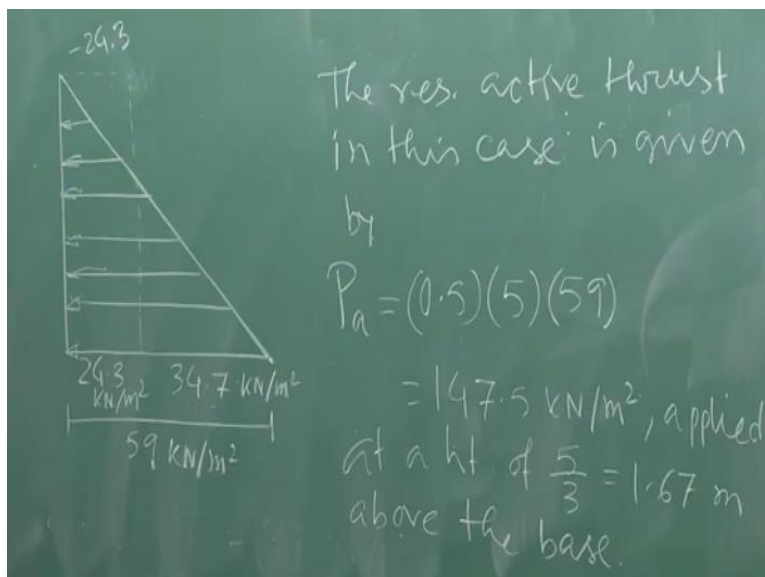 -24.3
24.3
KN/m²
34.7 KN/m²
59 KN/m²
The res. active thrust
in this case is given
by
Pa = (0.5)(5)(59)
= 147.5 KN/m², applied
at a ht. of 5/3 = 1.67 m
above the base.